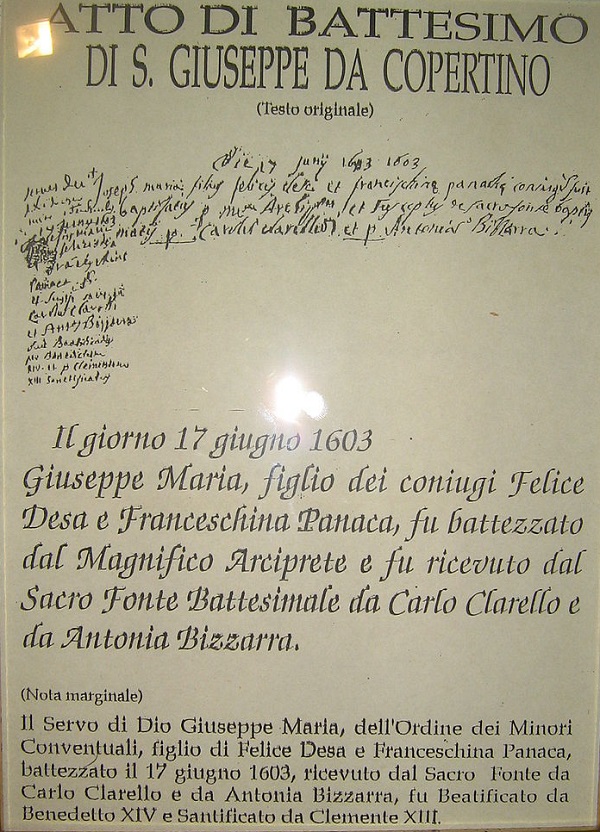 ATTO DI BATTESIMO
DI S. GIUSEPPE DA COPERTINO
(Testo originale)
Die 17 junij 1603 1603
Joseph maria filius felicis Desa et francischina panaca
baptizatus p
p. Carolus clarellus et p Antonia Bizzarra
Panaca
et Anto Bizzarra
XIV et p Clementem
XIII Sanctificatus
Il giorno 17 giugno 1603
Giuseppe Maria, figlio dei coniugi Felice
Desa e Franceschina Panaca, fu battezzato
dal Magnifico Arciprete e fu ricevuto dal
Sacro Fonte Battesimale da Carlo Clarello e
da Antonia Bizzarra.
(Nota marginale)
Il Servo di Dio Giuseppe Maria, dell'Ordine dei Minori
Conventuali, figlio di Felice Desa e Franceschina Panaca,
battezzato il 17 giugno 1603, ricevuto dal Sacro Fonte da
Carlo Clarello e da Antonia Bizzarra, fu Beatificato da
Benedetto XIV e Santificato da Clemente XIII.